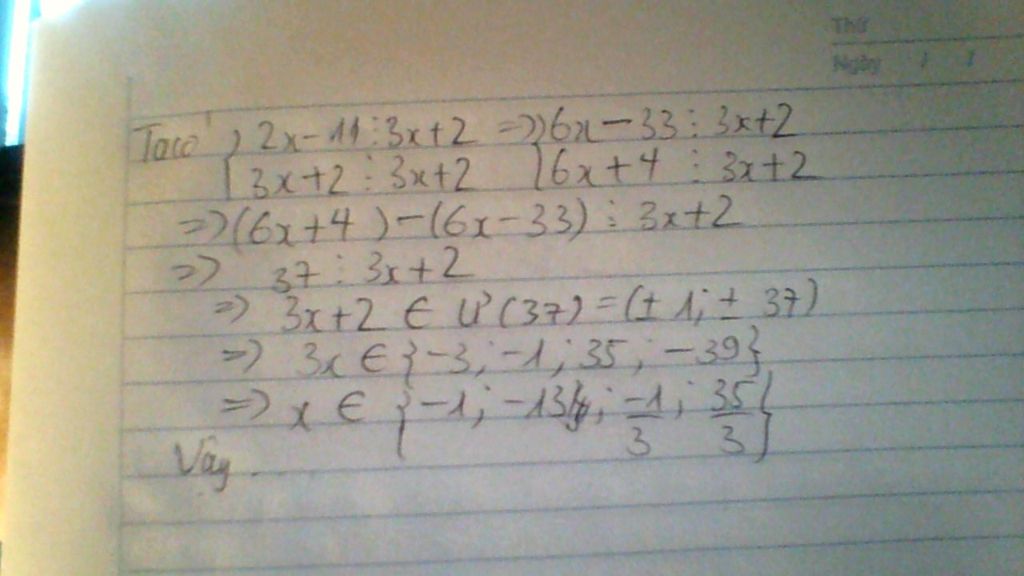 Thứ
Ngày / /
Ta có { 2x-11 ⋮ 3x+2 => { 6x-33 ⋮ 3x+2
3x+2 ⋮ 3x+2 6x+4 ⋮ 3x+2
=> (6x+4) - (6x-33) ⋮ 3x+2
=> 37 ⋮ 3x+2
=> 3x+2 ∈ Ư(37) = (±1; ±37)
=> 3x ∈ {-3; -1; 35; -39}
=> x ∈ {-1; -13; -1/3; 35/3}
Vậy.